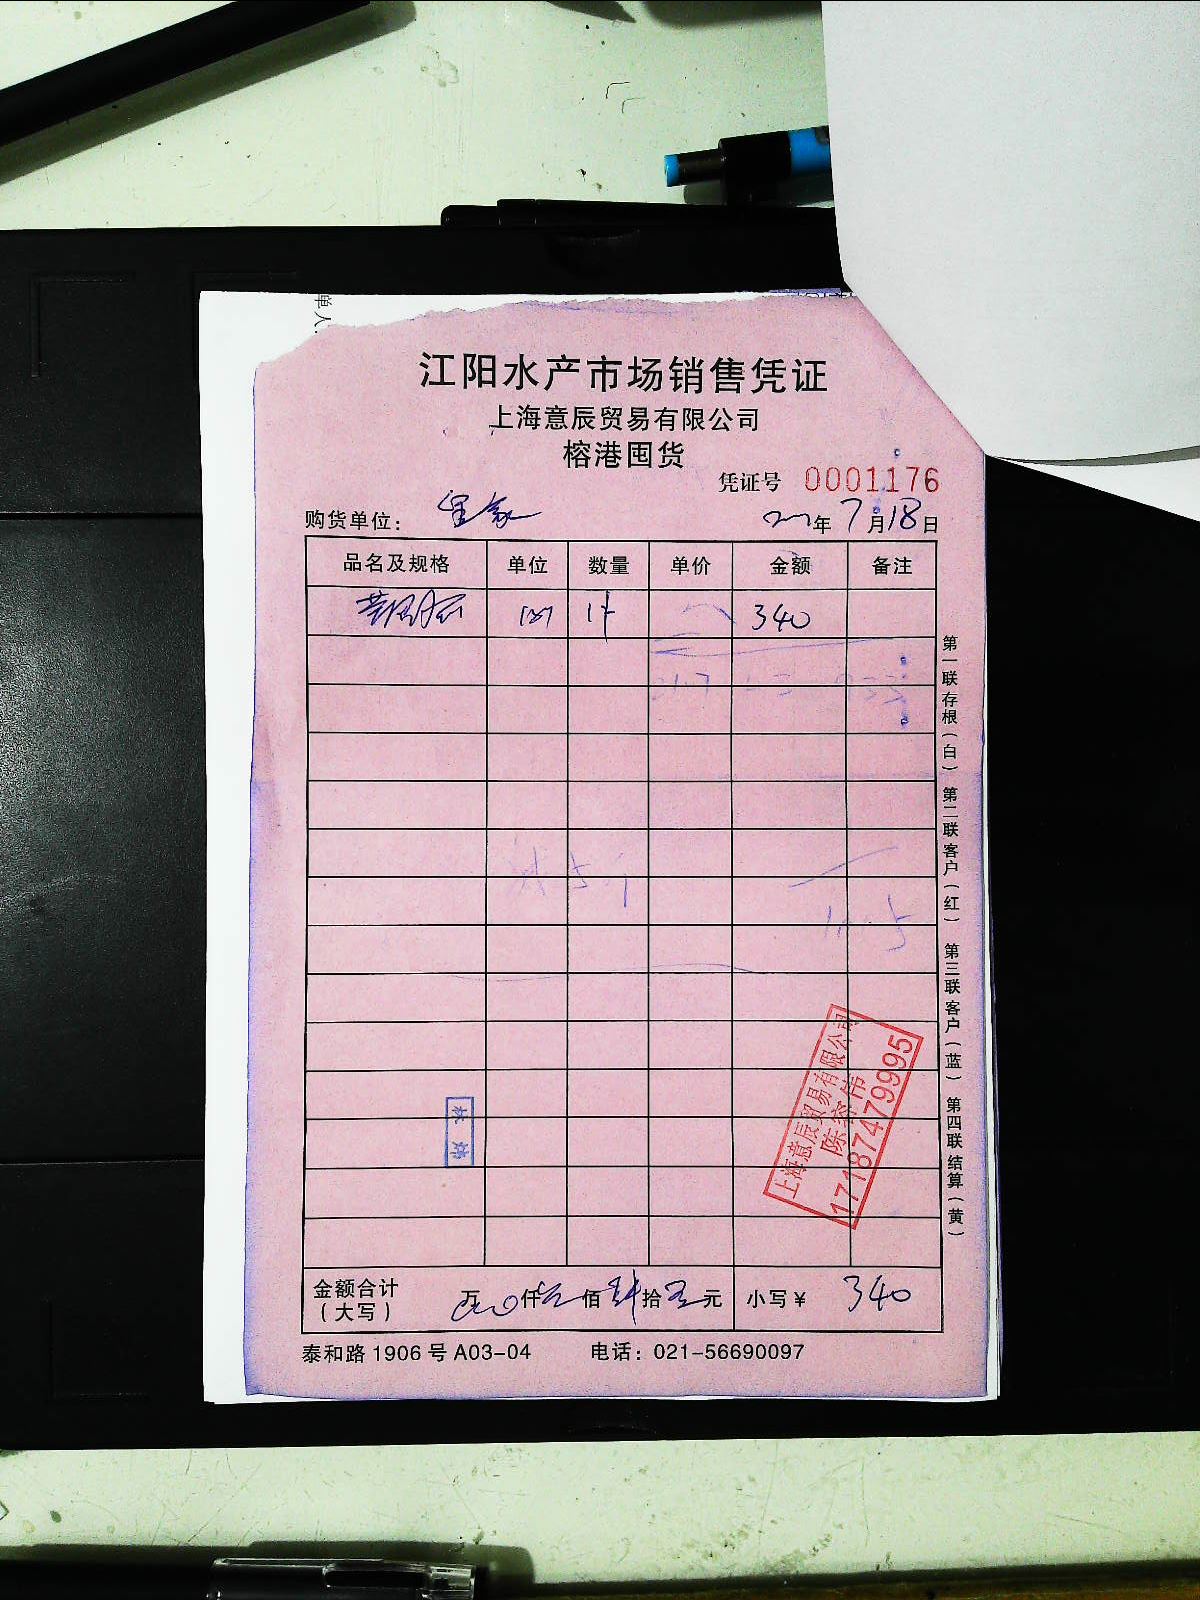 单人
江阳水产市场销售凭证
上海意辰贸易有限公司
榕港囤货
凭证号 0001176
购货单位： 年 7 月 18 日
品名及规格 单位 数量 单价 金额 备注
1件 340
第一联存根（白） 第二联客户（红） 第三联客户（蓝） 第四联结算（黄）
上海意辰贸易有限公司
17187479995
金额合计（大写） 万 仟 佰 肆 拾 元 小写￥ 340
泰和路 1906 号 A03-04 电话：021-56690097